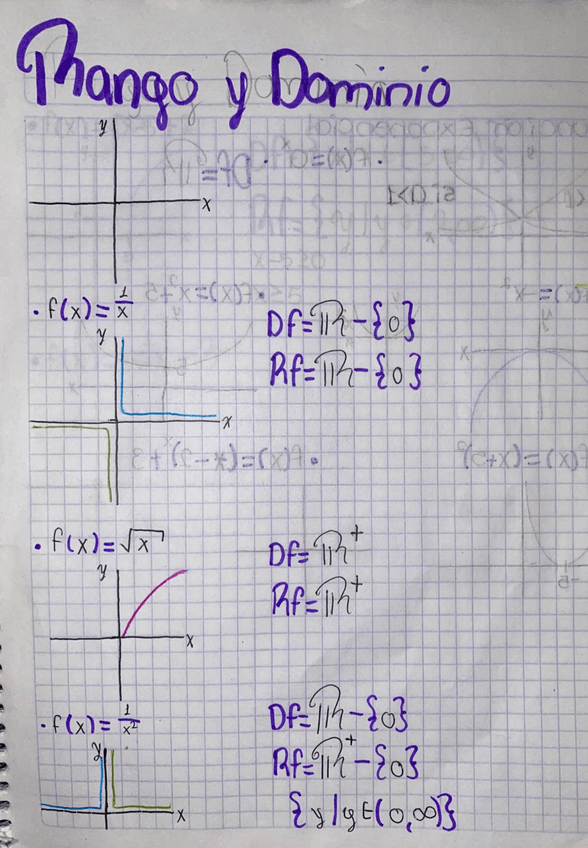 Rango y Dominio
y
x
• f(x) = 1/x
Df = ℝ - {0}
Rf = ℝ - {0}
y
x
• f(x) = √x
Df = ℝ⁺
Rf = ℝ⁺
y
x
• f(x) = 1/x²
Df = ℝ - {0}
Rf = ℝ⁺ - {0}
{y/y∈(0,∞)}
y
x